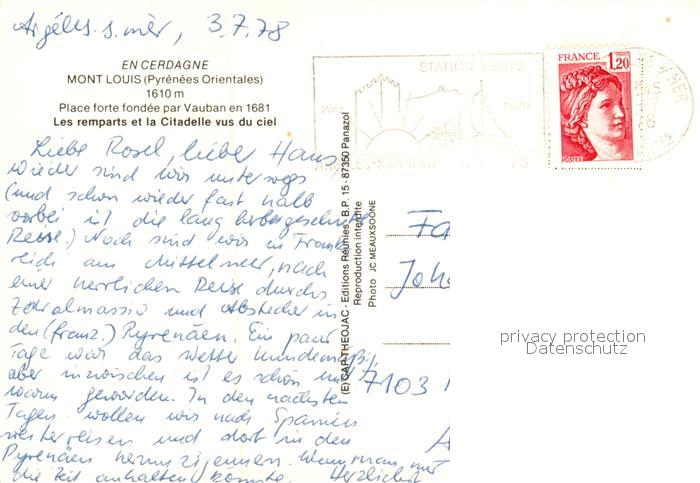 Argèles s. mèr, 3.7.78
EN CERDAGNE
MONT LOUIS (Pyrénées Orientales)
1610 m
Place forte fondée par Vauban en 1681
Les remparts et la Citadelle vus du ciel
STATION VERTE
Vins
Fruits
FRANCE 1,20
POSTES
S/MER
Liebe Rosel, lieber Hans,
wieder sind wir unterwegs
(und schon wieder fast halb
vorbei ist die lang herbeigesehnte
Reise.) Noch sind wir in Frank-
reich am Mittelmeer, nach
einer herrlichen Reise durchs
Zentralmassiv und Abstecher in
den (franz.) Pyrenäen. Ein paar
Tage war das Wetter hundemäßig,
aber inzwischen ist es schön und
warm geworden. In den nächsten
Tagen wollen wir nach Spanien
weiterreisen und dort in den
Pyrenäen herumzigeunern. Wenn man nur
die Zeit anhalten könnte. Herzlichst
(E) CAP-THEOJAC - Editions Réunies, B.P. 15 - 87350 Panazol
Reproduction interdite
Photo JC MEAUXSOONE
Fa
Joh
7103
privacy protection
Datenschutz